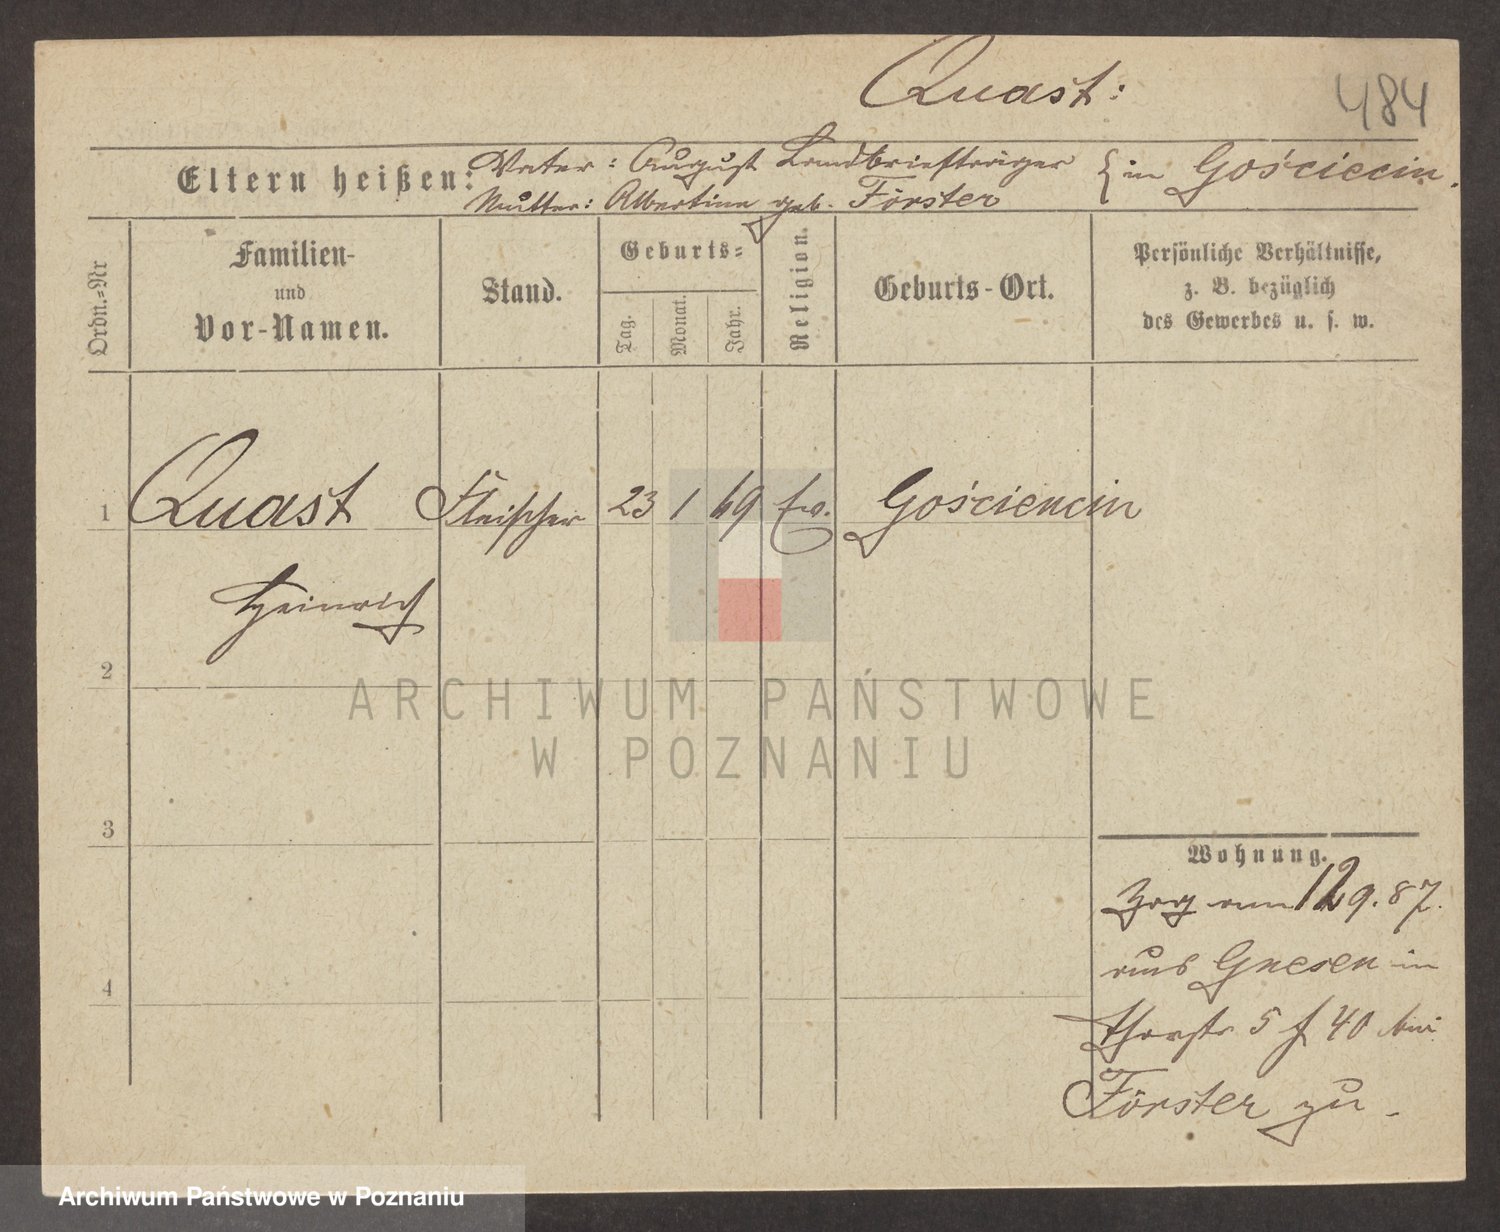 Quast:
484
Eltern heißen:
Vater: August Landbriefträger
Mutter: Albertine geb. Förster
} in Gościecin.
Ordn.-Nr
Familien-
und
Vor-Namen.
Stand.
Geburts-
Tag.
Monat.
Jahr.
Religion.
Geburts-Ort.
Persönliche Verhältnisse,
z. B. bezüglich
des Gewerbes u. s. w.
1 Quast Fleischer 23 1 69 Ev. Gościencin
Heinrich
2
ARCHIWUM PAŃSTWOWE
W POZNANIU
3
Wohnung.
Zog am 12 9. 87.
aus Gnesen in
5 40 bei
4
Förster zu.
Archiwum Państwowe w Poznaniu